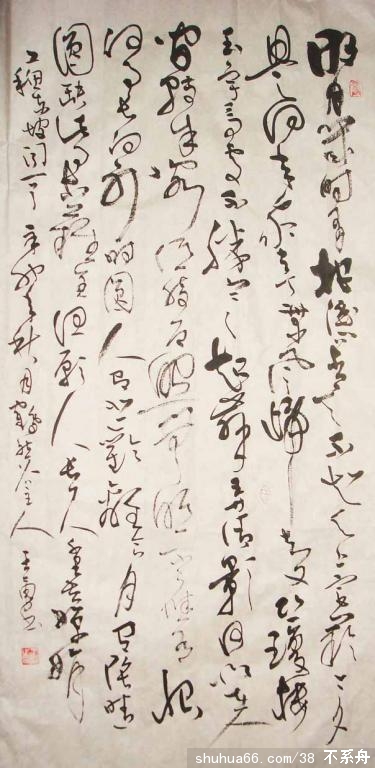 明月几时有把酒问青天不知天上宫阙今夕
是何年我欲乘风归去又恐琼楼
玉宇高处不胜寒起舞弄清影何似在人
间转朱阁低绮户照无眠不应有恨
何事长向别时圆人有悲欢离合月有阴晴
圆缺此事古难全但愿人长久千里共婵娟
东坡词一
月 主人
shuhua66.com/38 不系舟